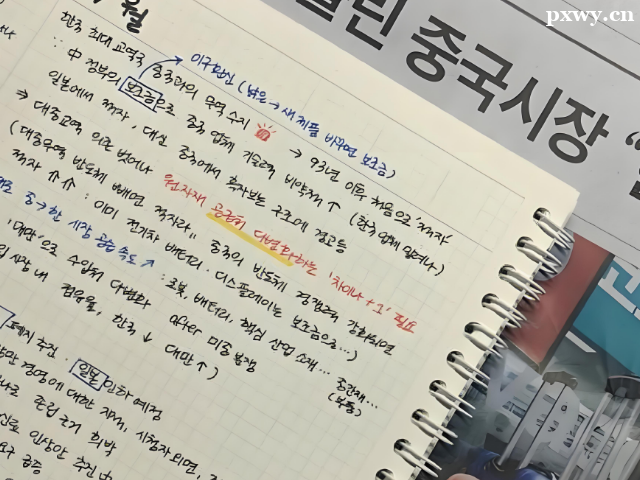 pxwy.cn
린 중국시장 "
월
이구환신 (낡은→새 제품 바꾸면 보조금)
한국 최대 교역국 중국과의 무역수지 → 93년 이후 처음으로 '적자'
∵ 中 정부의 보조금으로 중국 업체 기술력 비약적 ↑ (한국 업체 밀려나)
일본에서 적자, 대신 중국에서 흑자보는 구조에 경고등
⇒ 대중교역 의존 벗어나 원자재 공급처 다변화하는 '차이나+1' 필요
(대중무역 반도체 빼면 적자라,, 중국의 반도체 경쟁력 강화되면
적자 ⇑⇑ : 이미 전기차 배터리·디스플레이는 보조금으로...)
중→한 시장 공습 속도 ↗ : 로봇, 배터리, 핵심 산업 소재... 중간재...
(부품)
'대만'으로 수입처 다변화 after 미중 분쟁
시장 내 점유율, 한국 ↓ 대만 ↑)
폐지 추진. 일본 인하 예정
방만 경영에 대한 지적, 시청자 외면,
존립 근거 희박
인상안 추진
요구 급증